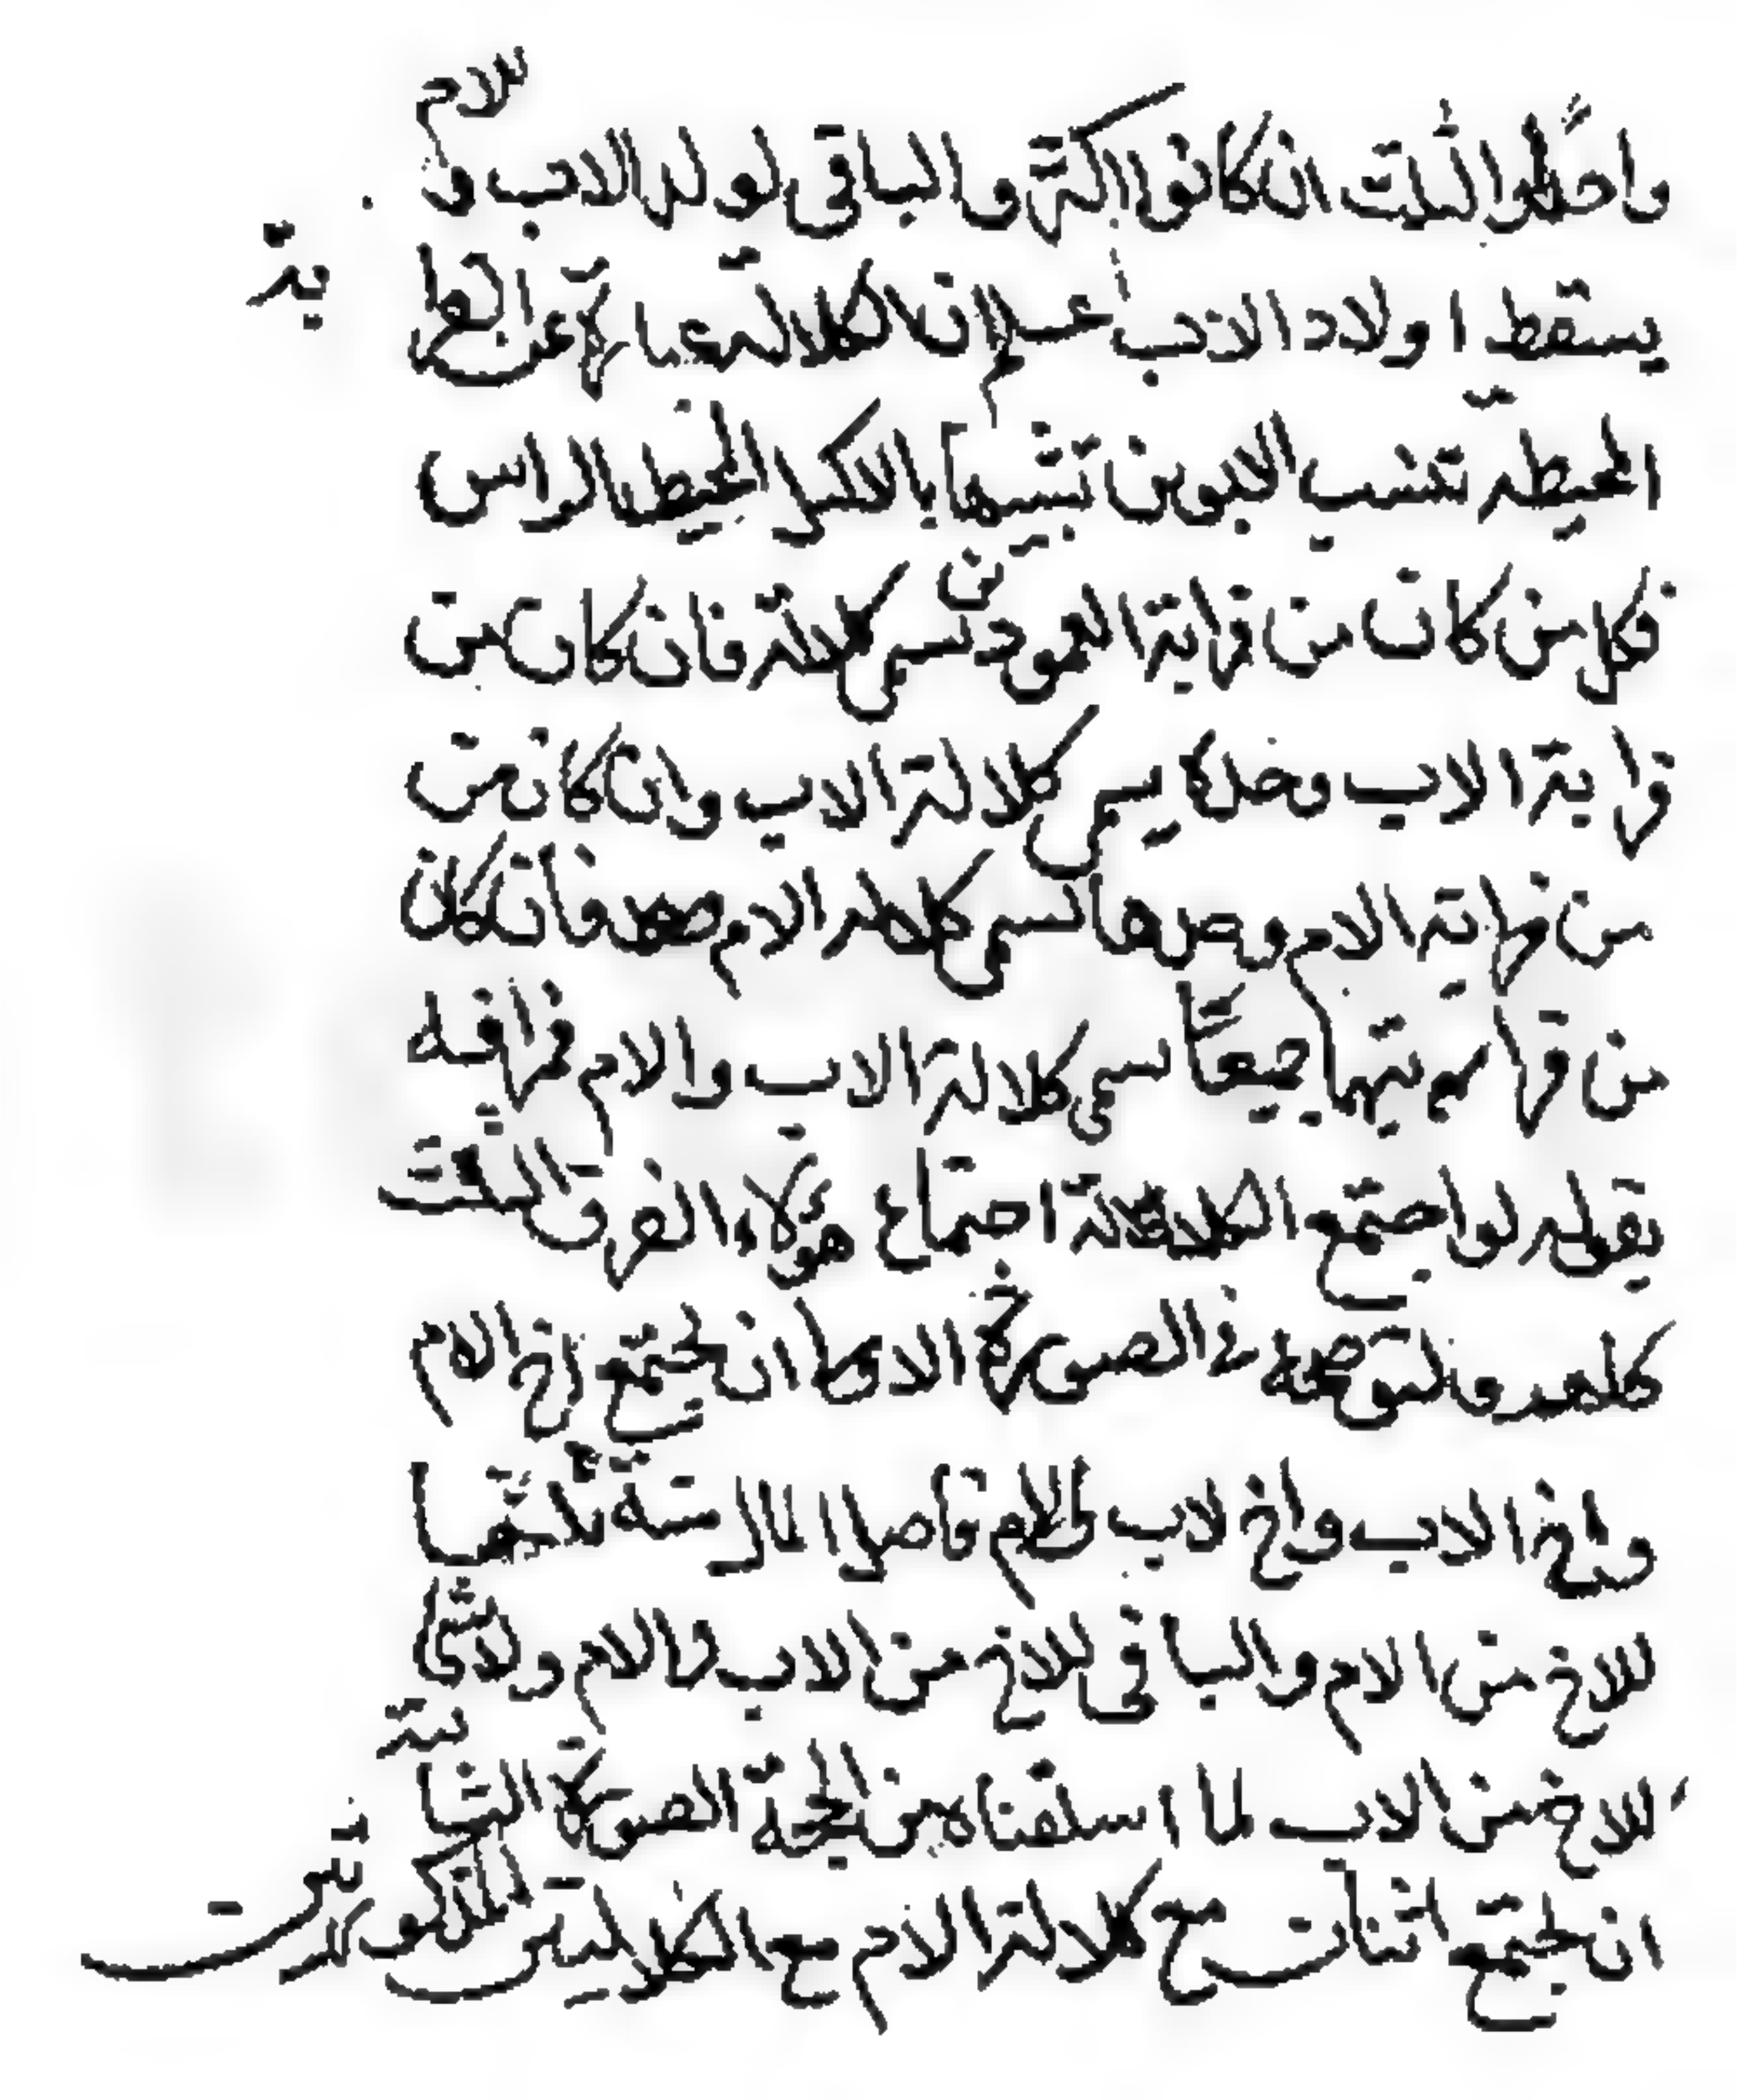 واحطوا الثلث ان كانوا اكثر والباقى لولد الاب و
يسقط اولاد الاب علم ان الكلالة عبارة عن القرا
المحيطة بنسب الابوين تشبيها بالاكليل المحيط بالراس
فكل من كان من قرابة العمودين تسمى كلالة فان كان من
قرابة الاب وحده يسمى كلالة الاب وان كان من
من قرابة الام وحدها تسمى كلالة الام فان كان
من قرابتهما جميعًا تسمى كلالة الاب والام
بقوله لو اجتمع الكلالة اجتماع هؤلاء الفرق الثلث
كلهم وتوضيحه فى الصورة الاولى ان يجتمع اخ الام
واخ الاب واخ لاب ولام فاصل المال ستة
للاخ من الام والباقى للاخ من الاب والام ولا شئ
للاخ من الاب لما اسلفناه من الحجة الصورة الثانية
ان يجتمع اثنان مع كلالة الام مع الكلالتين المذكورتين